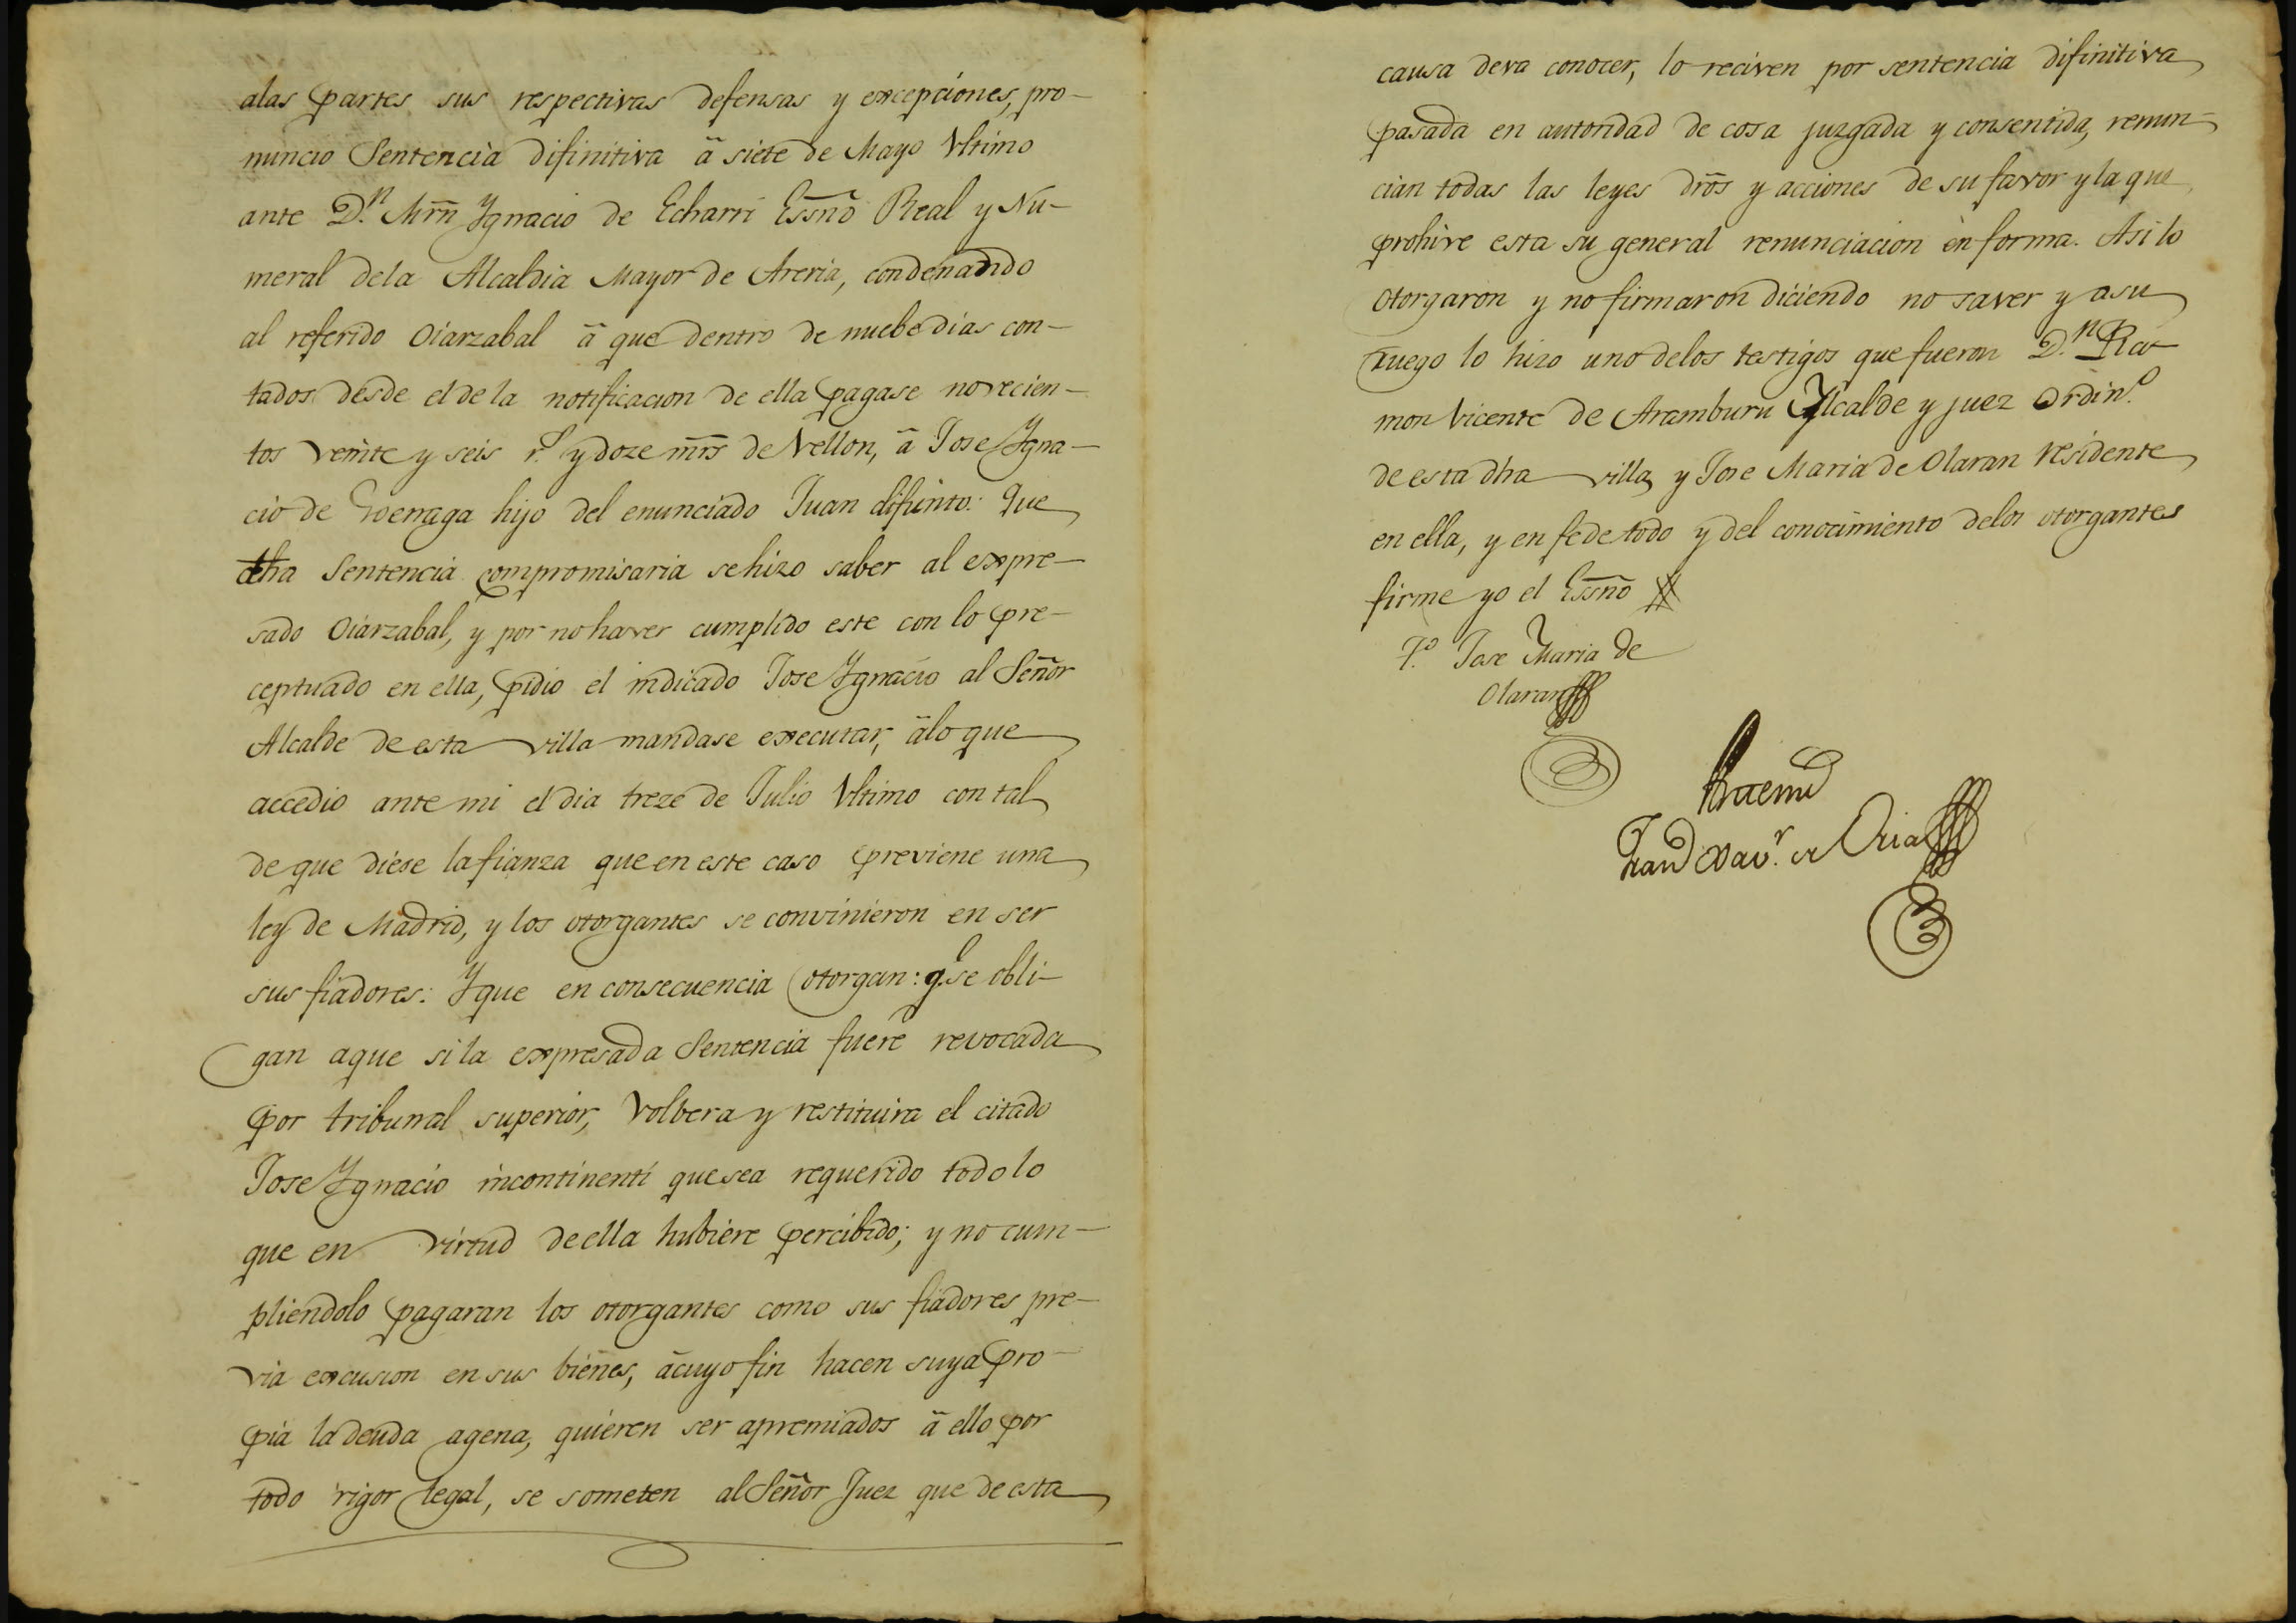 alas partes sus respectivas defensas y excepciones, pro-
nuncio Sentencia difinitiva â siete de Mayo Ultimo
ante D.n Mrñ Ygnacio de Echarri Essño Real y Nu-
meral dela Alcaldia Mayor de Areria, condenando
al referido Oiarzabal â que dentro de nuebe dias con-
tados desde el de la notificacion de ella pagase novecien-
tos veinte y seis r.s y doze mrs de Vellon, â Jose Ygna-
cio de Goenaga hijo del enunciado Juan difunto: Que
dha Sentencia compromisaria sehizo saber al expre-
sado Oiarzabal, y por no haver cumplido este con lo pre-
ceptuado en ella, pidio el indicado Jose Ygnacio al Señor
Alcalde de esta villa mandase executar, âlo que
accedio ante mi el dia treze de Julio Ultimo con tal
de que diese la fianza que en este caso previene una
ley de Madrid, y los otorgantes se convinieron en ser
sus fiadores: Y que en consecuencia otorgan: q.e se obli-
gan aque si la expresada Sentencia fuere revocada
por tribunal superior, volbera y restituira el citado
Jose Ygnacio incontinenti que sea requerido todo lo
que en virtud de ella hubiere percibido; y no cum-
pliendolo pagaran los otorgantes como sus fiadores pre-
via excusion en sus bienes, âcuyo fin hacen suya pro-
pia la deuda agena, quieren ser apremiados â ello por
todo rigor legal, se someten al Señor Juez que de esta
causa deva conocer, lo reciven por sentencia difinitiva
pasada en autoridad de cosa juzgada y consentida, renun-
cian todas las leyes drõs y acciones de su favor y la que
prohive esta su general renunciacion en forma. Asi lo
otorgaron y no firmaron diciendo no saver y asu
ruego lo hizo uno delos testigos que fueron D.n Ra-
mon Vicente de Aramburu Alcalde y juez ordin.o
de esta dha villa, y Jose Maria de Olaran residente
en ella, y en fe de todo y del conocimiento delos otorgantes
firme yo el Essño
T.o Jose Maria de
Olaran
Antemi
Fran.co Xav.r de Oria